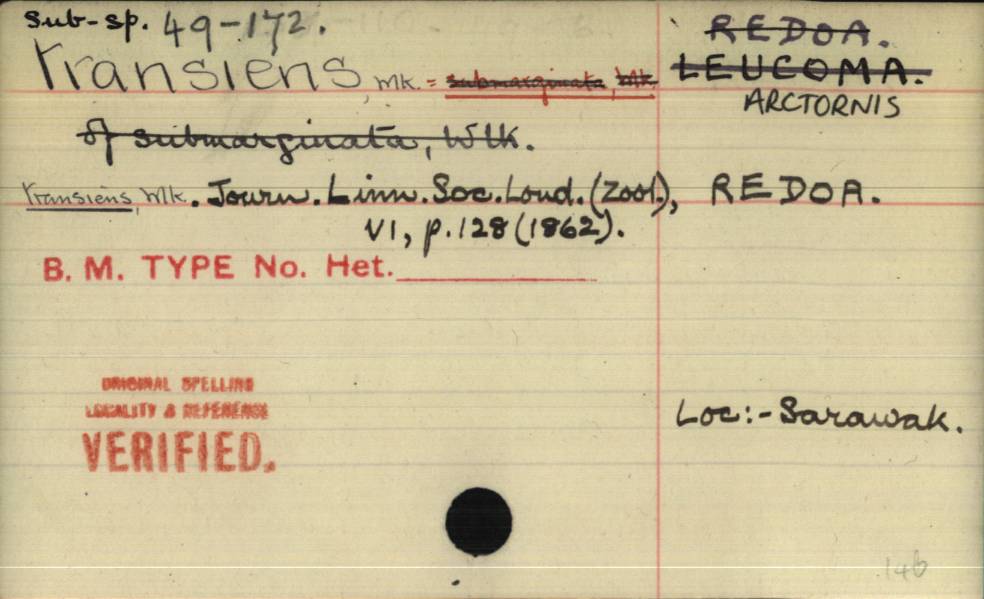 Sub-sp. 49-172.
REDOA.
transiens, Wlk. = submarginata, Wlk.
LEUCOMA.
ARCTORNIS
of submarginata, Wlk.
transiens, Wlk. Journ. Linn. Soc. Lond. (Zool.), REDOA.
VI, p. 128 (1862).
B. M. TYPE No. Het.
ORIGINAL SPELLING
LOCALITY & REFERENCE
VERIFIED.
Loc:- Sarawak.
146